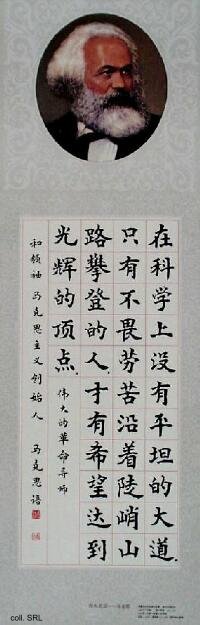 在科学上没有平坦的大道.
只有不畏劳苦沿着陡峭山
路攀登的人.才有希望达到
光辉的顶点. 伟大的革命导师
和领袖 马克思主义创始人 马克思语
coll. SRL